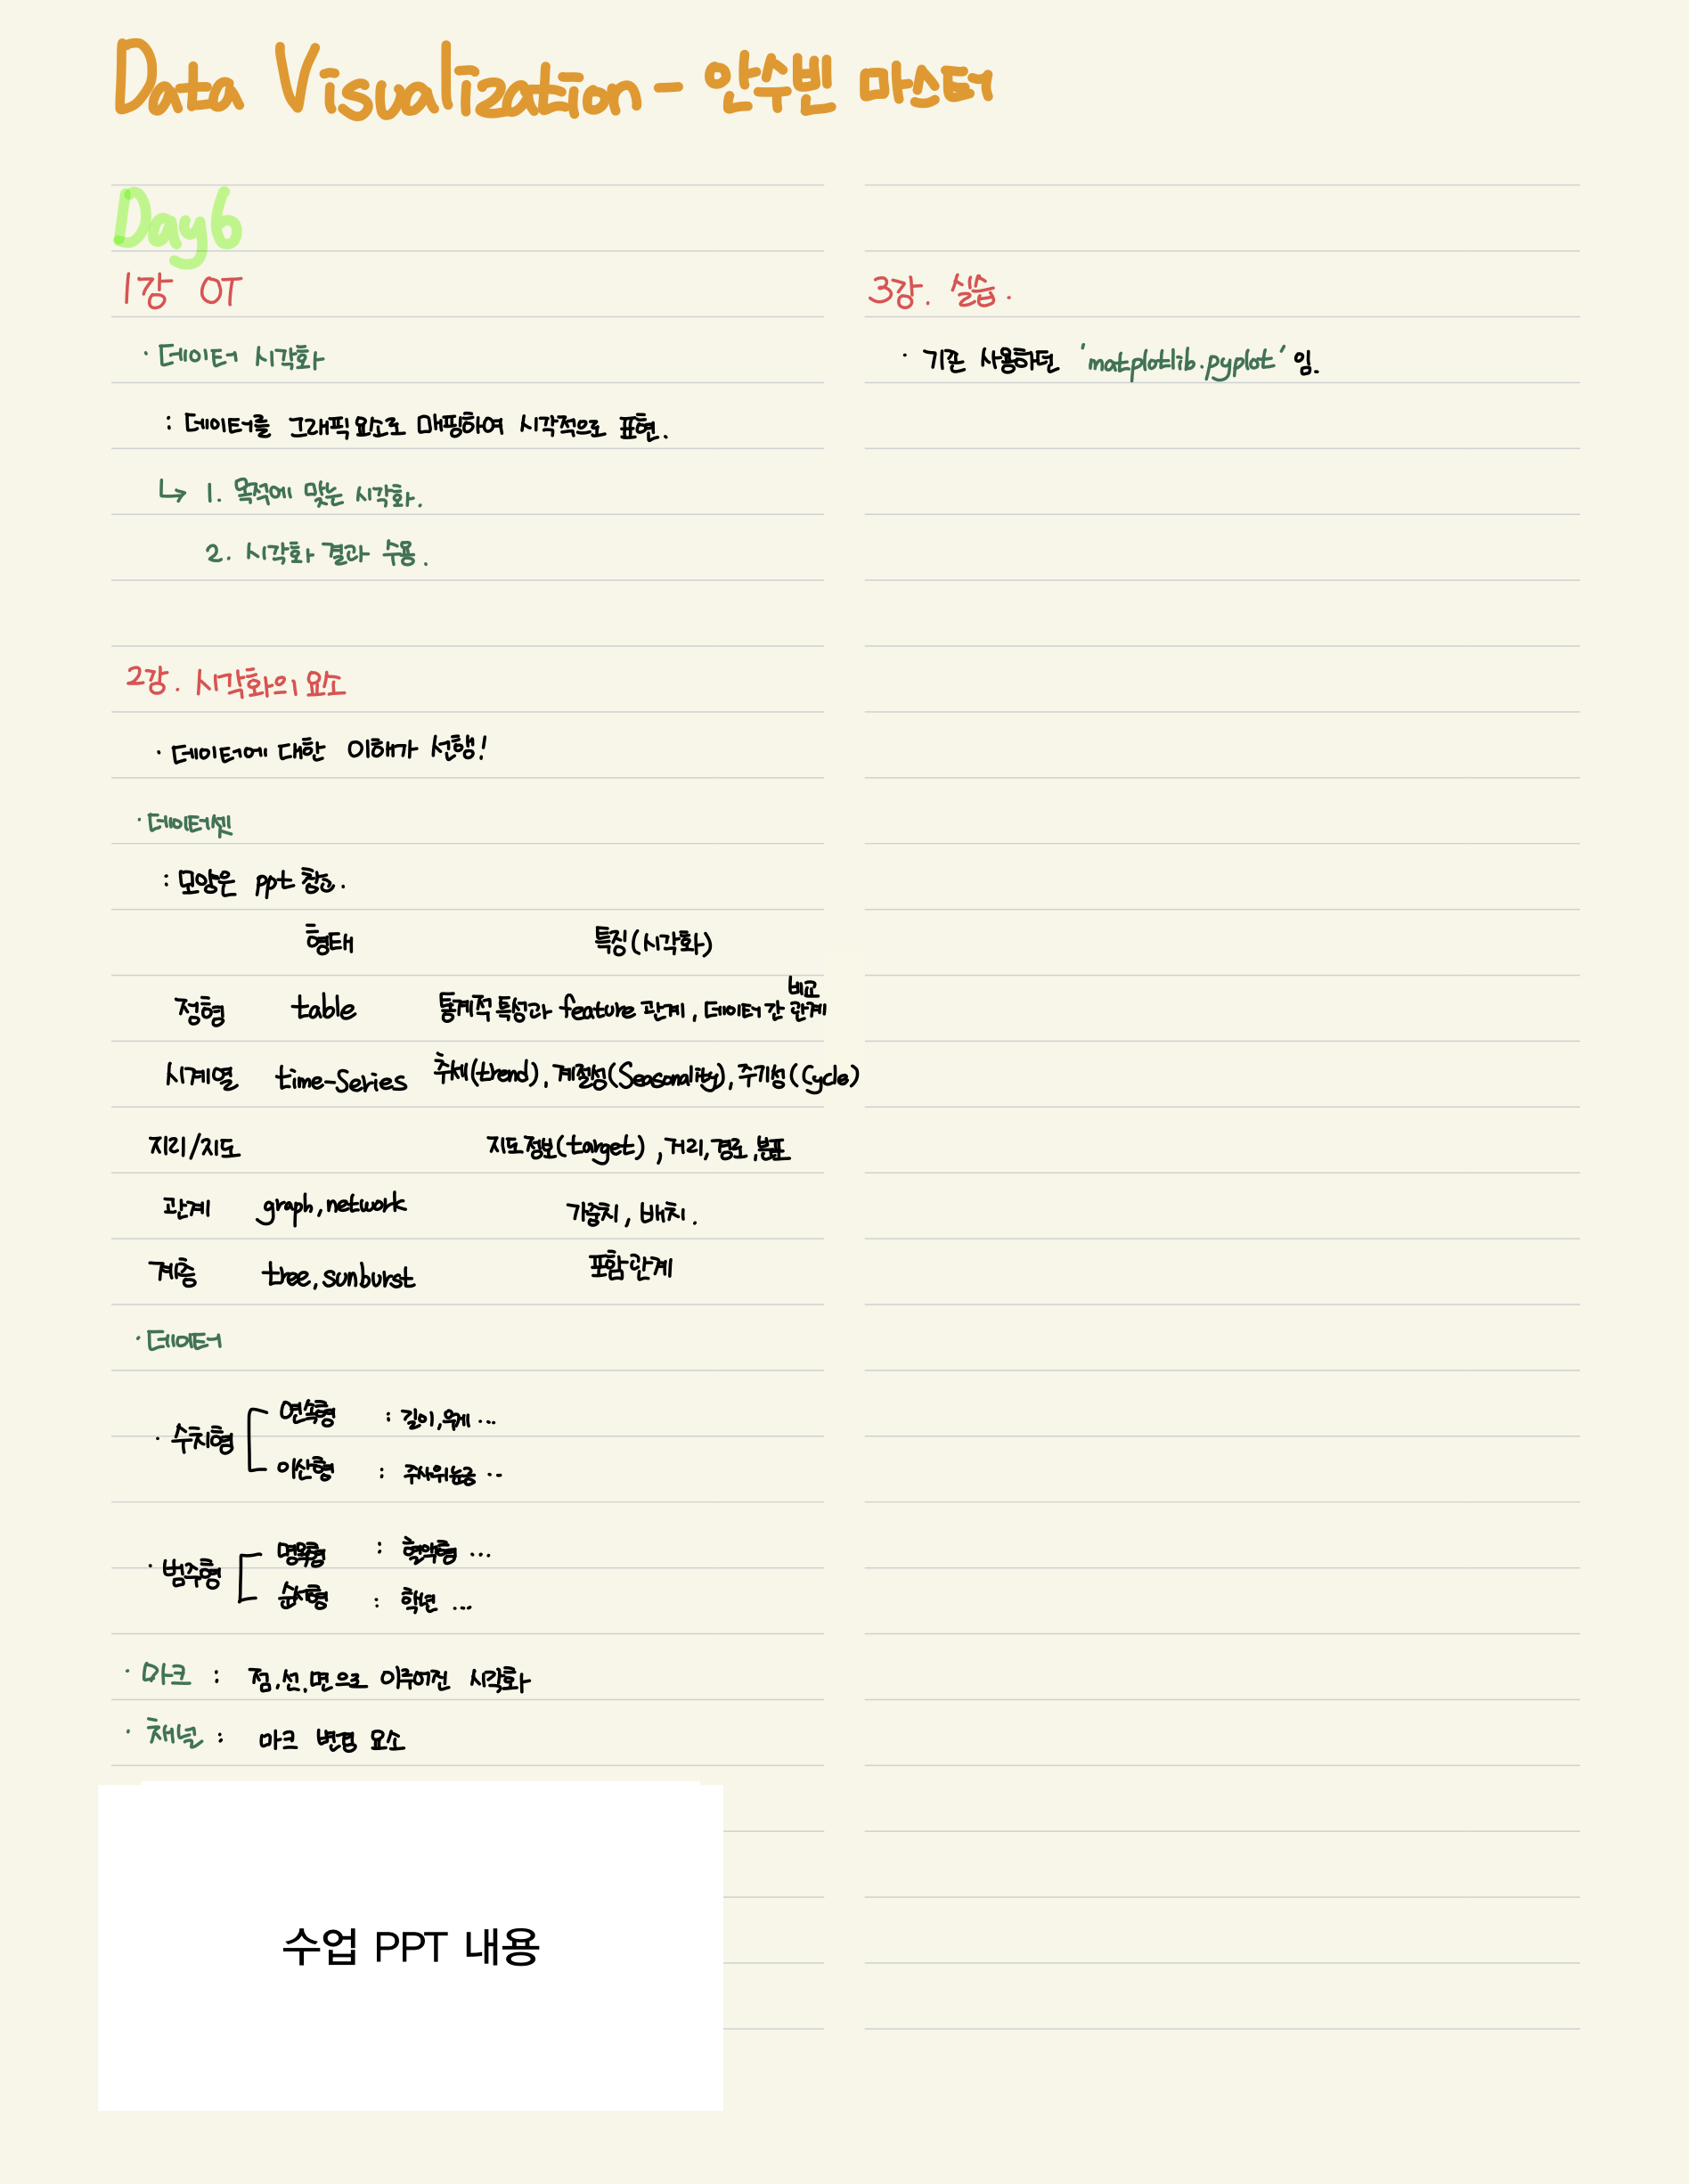 Data Visualization - 안수빈 마스터
Day6
1강 OT
· 데이터 시각화
: 데이터를 그래픽 요소로 매핑하여 시각적으로 표현.
↳ 1. 목적에 맞는 시각화.
2. 시각화 결과 수용.
2강. 시각화의 요소
· 데이터에 대한 이해가 선행!
· 데이터셋
: 모양은 ppt 참조.
형태 특징(시각화)
비교
정형 table 통계적 특성과 feature 관계, 데이터 간 관계
시계열 time-Series 추세(trend), 계절성(Seasonality), 주기성(Cycle)
지리/지도 지도 정보(target), 거리, 경로, 분포
관계 graph, network 가중치, 배치.
계층 tree, sunburst 포함관계
· 데이터
· 수치형
연속형 : 길이, 무게 ...
이산형 : 주사위 눈금 ..
· 범주형
명목형 : 혈액형 ...
순서형 : 학년 ...
· 마크 : 점, 선, 면으로 이루어진 시각화
· 채널 : 마크 변형 요소
수업 PPT 내용
3강. 실습.
· 기존 사용하던 'matplotlib.pyplot' 임.